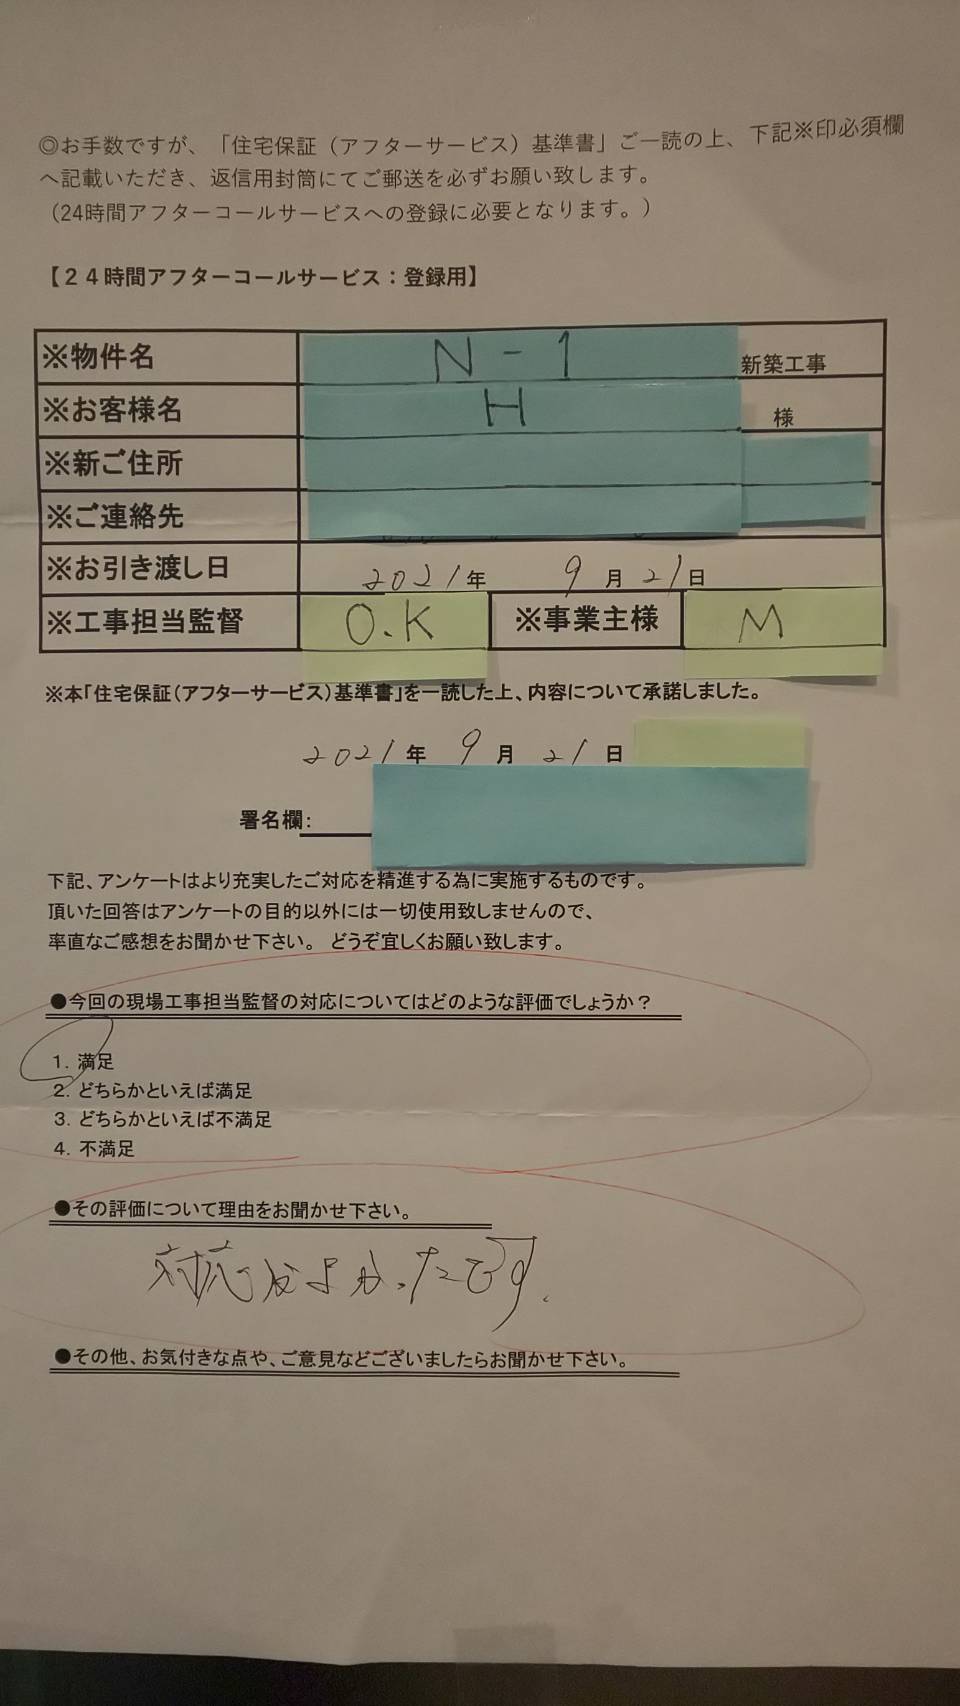 ◎お手数ですが、「住宅保証（アフターサービス）基準書」ご一読の上、下記※印必須欄
へ記載いただき、返信用封筒にてご郵送を必ずお願い致します。
（24時間アフターコールサービスへの登録に必要となります。）
【２４時間アフターコールサービス：登録用】
※物件名 N-1 新築工事
※お客様名 H 様
※新ご住所
※ご連絡先
※お引き渡し日 2021年 9月21日
※工事担当監督 O.K ※事業主様 M
※本「住宅保証（アフターサービス）基準書」を一読した上、内容について承諾しました。
2021年 9月 21日
署名欄：
下記、アンケートはより充実したご対応を精進する為に実施するものです。
頂いた回答はアンケートの目的以外には一切使用致しませんので、
率直なご感想をお聞かせ下さい。 どうぞ宜しくお願い致します。
●今回の現場工事担当監督の対応についてはどのような評価でしょうか？
1．満足
2．どちらかといえば満足
3．どちらかといえば不満足
4．不満足
●その評価について理由をお聞かせ下さい。
対応がよかったです。
●その他、お気付きな点や、ご意見などございましたらお聞かせ下さい。